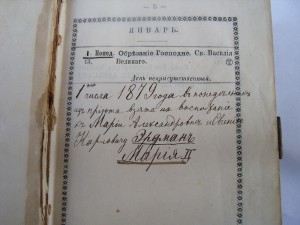 — 5 —
ЯНВАРЬ.
1. Понед. Обрѣзаніе Господне. Св. Василія
13. Великаго.
День неприсутственный.
1 числа 1879 года въ понедѣльникъ
изъ пріюта взята на воспитаніе
Маріи Александровичъ и
Карловичъ Эрдманъ
Марія II